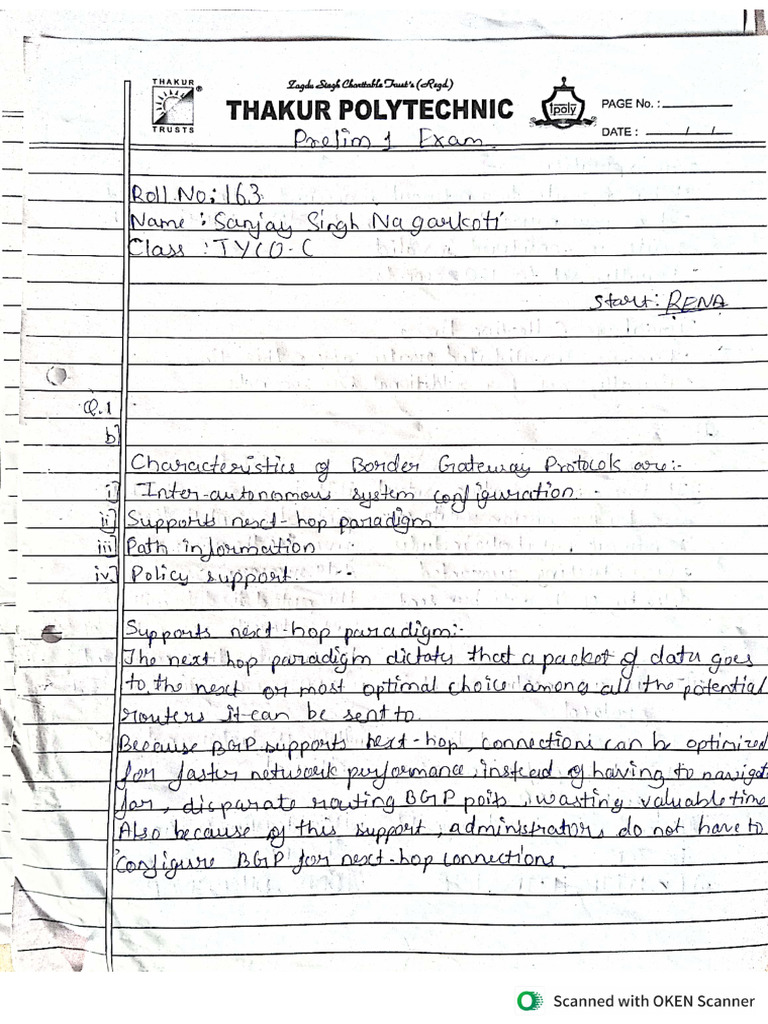 THAKUR
TRUSTS
Zagdu Singh Charitable Trust's (Regd.)
THAKUR POLYTECHNIC
tpoly
PAGE No. :
DATE : / /
Prelim 1 Exam
Roll.No: 163
Name : Sanjay Singh Nagarkoti
Class : TYCO-C
Start: RENA
Q.1
b]
Characteristics of Border Gateway Protocols are:-
i] Inter-autonomous system configuration.
ii] Supports next-hop paradigm
iii] Path information
iv.] Policy support.
Supports next-hop paradigm:-
The next hop paradigm dictates that a packet of data goes
to the next or most optimal choice among all the potential
routers it can be sent to.
Because BGP supports next-hop, connections can be optimized
for faster network performance, instead of having to navigat
far, disparate routing BGP poits, wasting valuable time
Also because of this support, administrators do not have to
configure BGP for next-hop connections.
Scanned with OKEN Scanner